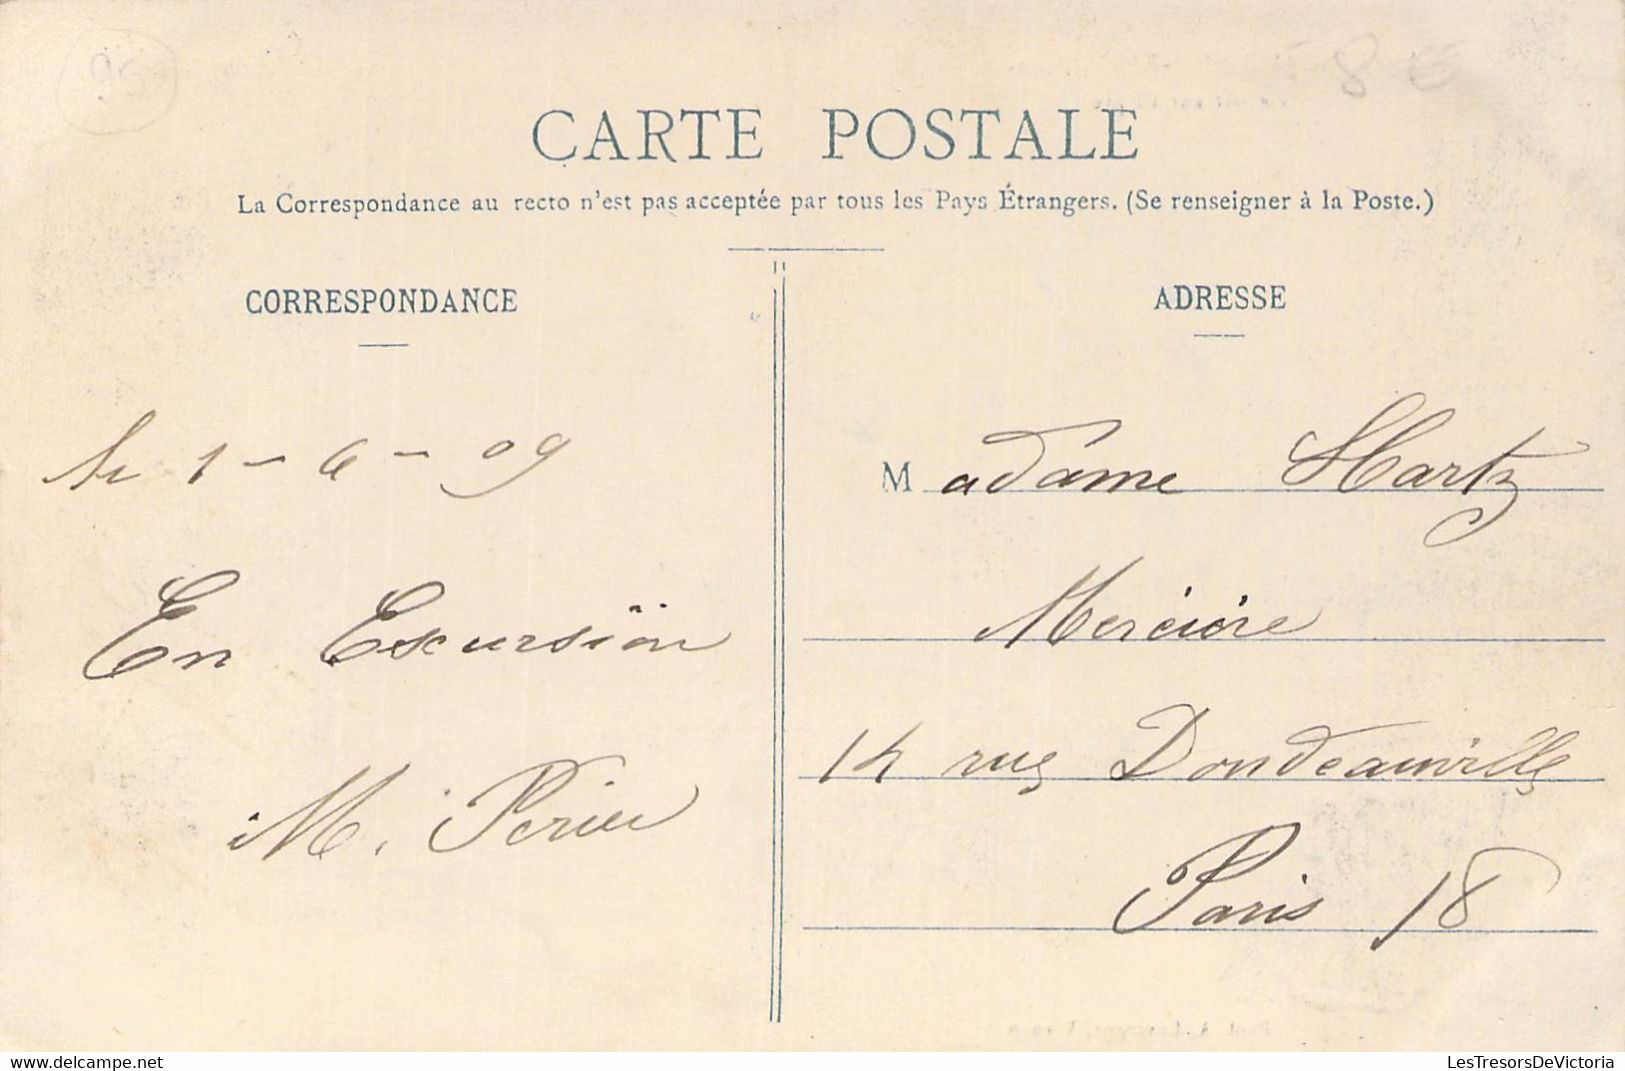 95
8 €
CARTE POSTALE
La Correspondance au recto n'est pas acceptée par tous les Pays Étrangers. (Se renseigner à la Poste.)
CORRESPONDANCE
1 - 6 - 09
En Excursion
M. Perier
ADRESSE
Madame Hartz
Mercière
14 rue Doudeauville
Paris 18
LesTresorsDeVictoria
delcampe.net